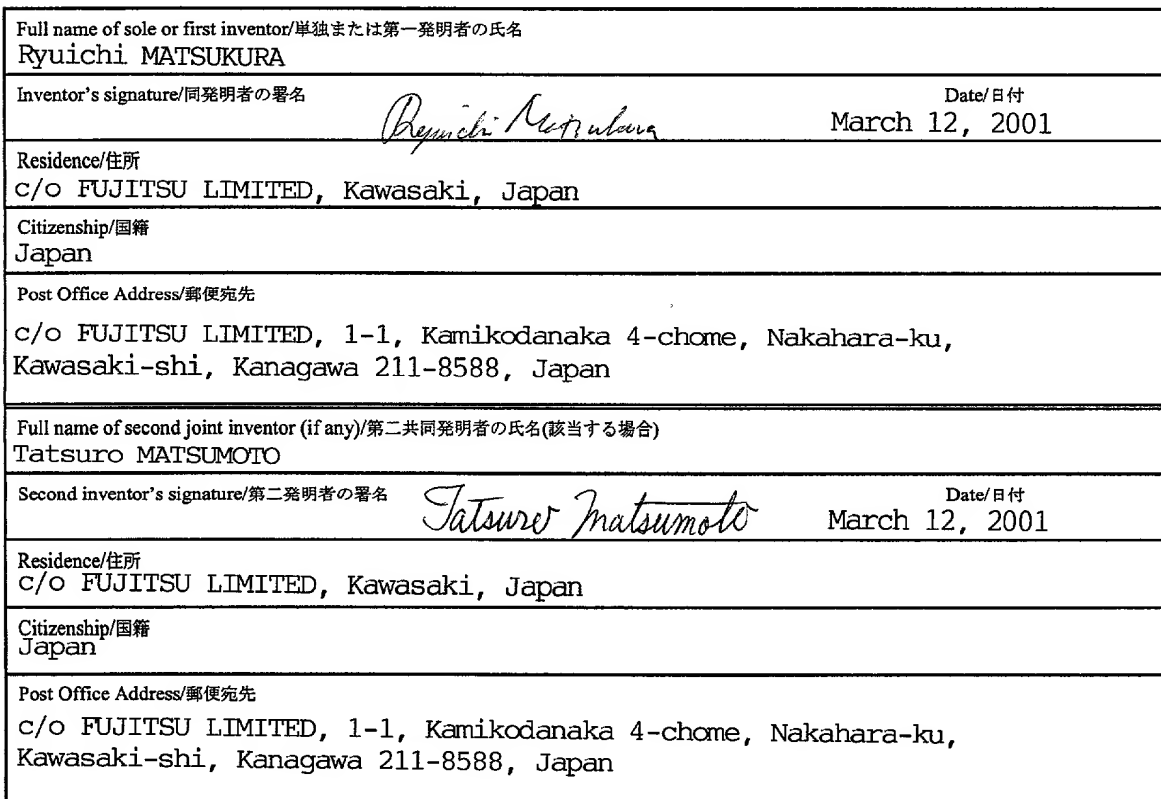 Full name of sole or first inventor/単独または第一発明者の氏名
Ryuichi MATSUKURA
Inventor's signature/同発明者の署名 Ryuichi Matsukura Date/日付
March 12, 2001
Residence/住所
c/o FUJITSU LIMITED, Kawasaki, Japan
Citizenship/国籍
Japan
Post Office Address/郵便宛先
c/o FUJITSU LIMITED, 1-1, Kamikodanaka 4-chome, Nakahara-ku,
Kawasaki-shi, Kanagawa 211-8588, Japan
Full name of second joint inventor (if any)/第二共同発明者の氏名(該当する場合)
Tatsuro MATSUMOTO
Second inventor's signature/第二発明者の署名 Tatsuro Matsumoto Date/日付
March 12, 2001
Residence/住所
c/o FUJITSU LIMITED, Kawasaki, Japan
Citizenship/国籍
Japan
Post Office Address/郵便宛先
c/o FUJITSU LIMITED, 1-1, Kamikodanaka 4-chome, Nakahara-ku,
Kawasaki-shi, Kanagawa 211-8588, Japan